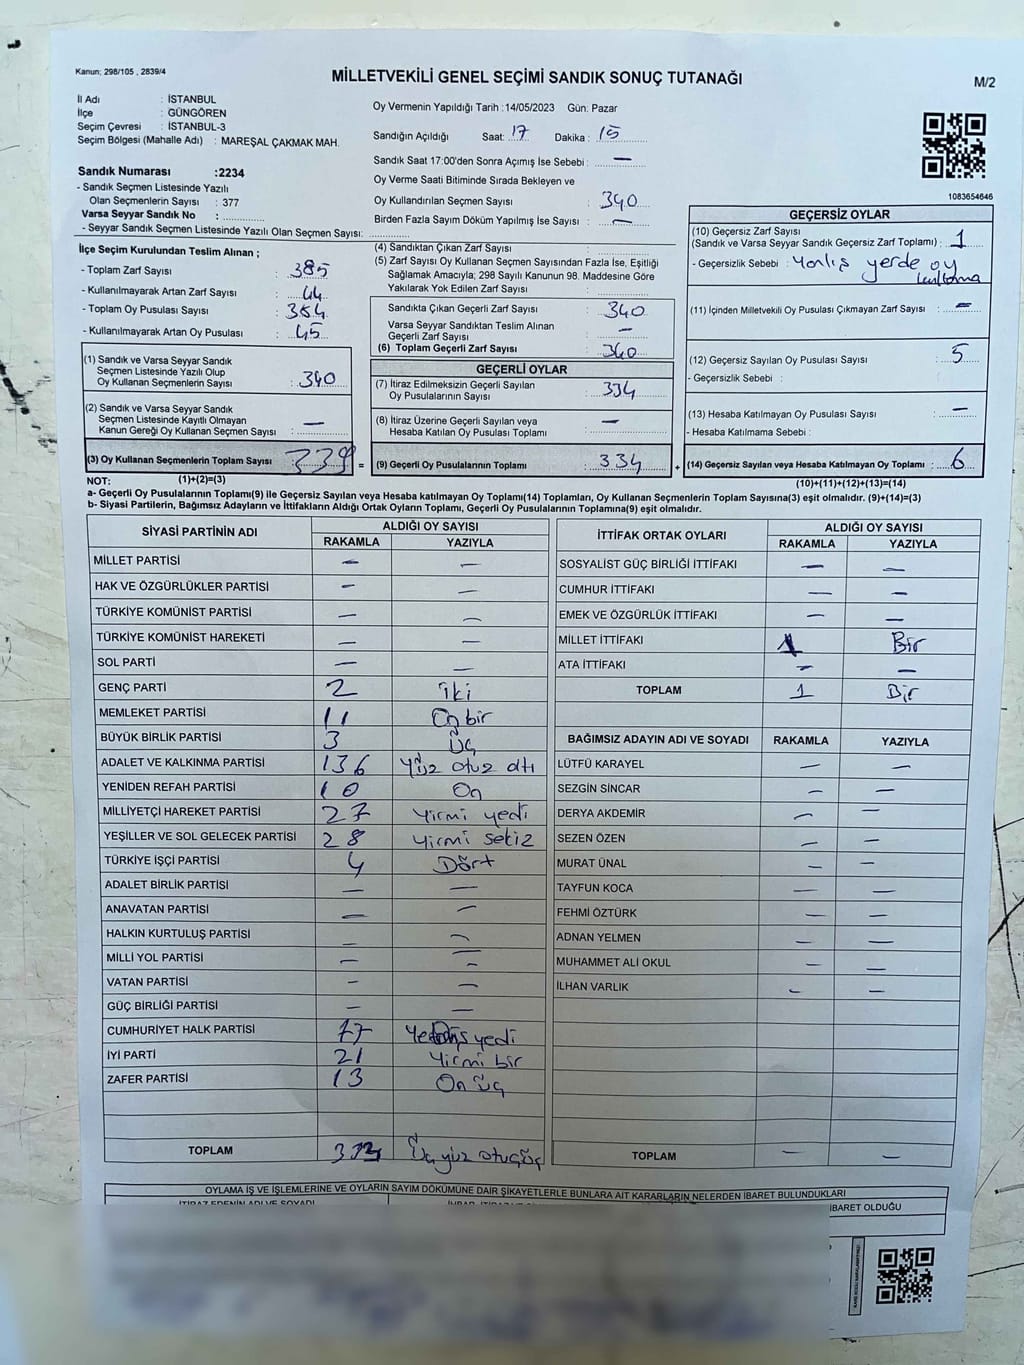 Kanun; 298/105 , 2839/4
MİLLETVEKİLİ GENEL SEÇİMİ SANDIK SONUÇ TUTANAĞI
M/2
İl Adı : İSTANBUL
İlçe : GÜNGÖREN
Seçim Çevresi : İSTANBUL-3
Seçim Bölgesi (Mahalle Adı) : MAREŞAL ÇAKMAK MAH.
Sandık Numarası :2234
- Sandık Seçmen Listesinde Yazılı
Olan Seçmenlerin Sayısı : 377
Varsa Seyyar Sandık No :
- Seyyar Sandık Seçmen Listesinde Yazılı Olan Seçmen Sayısı:
Oy Vermenin Yapıldığı Tarih :14/05/2023 Gün: Pazar
Sandığın Açıldığı Saat: 17 Dakika : 15
Sandık Saat 17:00'den Sonra Açımış İse Sebebi : —
Oy Verme Saati Bitiminde Sırada Bekleyen ve
Oy Kullandırılan Seçmen Sayısı : 340
Birden Fazla Sayım Döküm Yapılmış İse Sayısı : —
1083654646
İlçe Seçim Kurulundan Teslim Alınan ;
- Toplam Zarf Sayısı : 385
- Kullanılmayarak Artan Zarf Sayısı : 44
- Toplam Oy Pusulası Sayısı : 384
- Kullanılmayarak Artan Oy Pusulası : 45
(1) Sandık ve Varsa Seyyar Sandık
Seçmen Listesinde Yazılı Olup
Oy Kullanan Seçmenlerin Sayısı : 340
(2) Sandık ve Varsa Seyyar Sandık
Seçmen Listesinde Kayıtlı Olmayan
Kanun Gereği Oy Kullanan Seçmen Sayısı : —
(3) Oy Kullanan Seçmenlerin Toplam Sayısı : 339 =
(4) Sandıktan Çıkan Zarf Sayısı :
(5) Zarf Sayısı Oy Kullanan Seçmen Sayısından Fazla İse, Eşitliği
Sağlamak Amacıyla; 298 Sayılı Kanunun 98. Maddesine Göre
Yakılarak Yok Edilen Zarf Sayısı :
Sandıkta Çıkan Geçerli Zarf Sayısı : 340
Varsa Seyyar Sandıktan Teslim Alınan
Geçerli Zarf Sayısı : —
(6) Toplam Geçerli Zarf Sayısı : 340
GEÇERLİ OYLAR
(7) İtiraz Edilmeksizin Geçerli Sayılan
Oy Pusulalarının Sayısı : 334
(8) İtiraz Üzerine Geçerli Sayılan veya
Hesaba Katılan Oy Pusulası Toplamı : —
(9) Geçerli Oy Pusulalarının Toplamı : 334 +
GEÇERSİZ OYLAR
(10) Geçersiz Zarf Sayısı
(Sandık ve Varsa Seyyar Sandık Geçersiz Zarf Toplamı) : 1
- Geçersizlik Sebebi : Yanlış yerde oy
kullanma
(11) İçinden Milletvekili Oy Pusulası Çıkmayan Zarf Sayısı : —
(12) Geçersiz Sayılan Oy Pusulası Sayısı : 5
- Geçersizlik Sebebi :
(13) Hesaba Katılmayan Oy Pusulası Sayısı : —
- Hesaba Katılmama Sebebi :
(14) Geçersiz Sayılan veya Hesaba Katılmayan Oy Toplamı : 6
NOT: (1)+(2)=(3) (10)+(11)+(12)+(13)=(14)
a- Geçerli Oy Pusulalarının Toplamı(9) ile Geçersiz Sayılan veya Hesaba katılmayan Oy Toplamı(14) Toplamları, Oy Kullanan Seçmenlerin Toplam Sayısına(3) eşit olmalıdır. (9)+(14)=(3)
b- Siyasi Partilerin, Bağımsız Adayların ve İttifakların Aldığı Ortak Oyların Toplamı, Geçerli Oy Pusulalarının Toplamına(9) eşit olmalıdır.
SİYASİ PARTİNİN ADI ALDIĞI OY SAYISI
RAKAMLA YAZIYLA
MİLLET PARTİSİ — —
HAK VE ÖZGÜRLÜKLER PARTİSİ — —
TÜRKİYE KOMÜNİST PARTİSİ — —
TÜRKİYE KOMÜNİST HAREKETİ — —
SOL PARTİ — —
GENÇ PARTİ 2 iki
MEMLEKET PARTİSİ 11 On bir
BÜYÜK BİRLİK PARTİSİ 3 Üç
ADALET VE KALKINMA PARTİSİ 136 Yüz otuz altı
YENİDEN REFAH PARTİSİ 10 On
MİLLİYETÇİ HAREKET PARTİSİ 27 Yirmi yedi
YEŞİLLER VE SOL GELECEK PARTİSİ 28 Yirmi sekiz
TÜRKİYE İŞÇİ PARTİSİ 4 Dört
ADALET BİRLİK PARTİSİ — —
ANAVATAN PARTİSİ — —
HALKIN KURTULUŞ PARTİSİ — —
MİLLİ YOL PARTİSİ — —
VATAN PARTİSİ — —
GÜÇ BİRLİĞİ PARTİSİ — —
CUMHURİYET HALK PARTİSİ 77 Yetmiş yedi
İYİ PARTİ 21 Yirmi bir
ZAFER PARTİSİ 13 On üç
TOPLAM 333 Üç yüz otuz üç
İTTİFAK ORTAK OYLARI ALDIĞI OY SAYISI
RAKAMLA YAZIYLA
SOSYALİST GÜÇ BİRLİĞİ İTTİFAKI — —
CUMHUR İTTİFAKI — —
EMEK VE ÖZGÜRLÜK İTTİFAKI — —
MİLLET İTTİFAKI 1 Bir
ATA İTTİFAKI — —
TOPLAM 1 Bir
BAĞIMSIZ ADAYIN ADI VE SOYADI RAKAMLA YAZIYLA
LÜTFÜ KARAYEL — —
SEZGİN SİNCAR — —
DERYA AKDEMİR — —
SEZEN ÖZEN — —
MURAT ÜNAL — —
TAYFUN KOCA — —
FEHMİ ÖZTÜRK — —
ADNAN YELMEN — —
MUHAMMET ALİ OKUL — —
İLHAN VARLIK — —
TOPLAM — —
OYLAMA İŞ VE İŞLEMLERİNE VE OYLARIN SAYIM DÖKÜMÜNE DAİR ŞİKAYETLERLE BUNLARA AİT KARARLARIN NELERDEN İBARET BULUNDUKLARI
İTİRAZ EDENİN ADI VE SOYADI
İBARET OLDUĞU